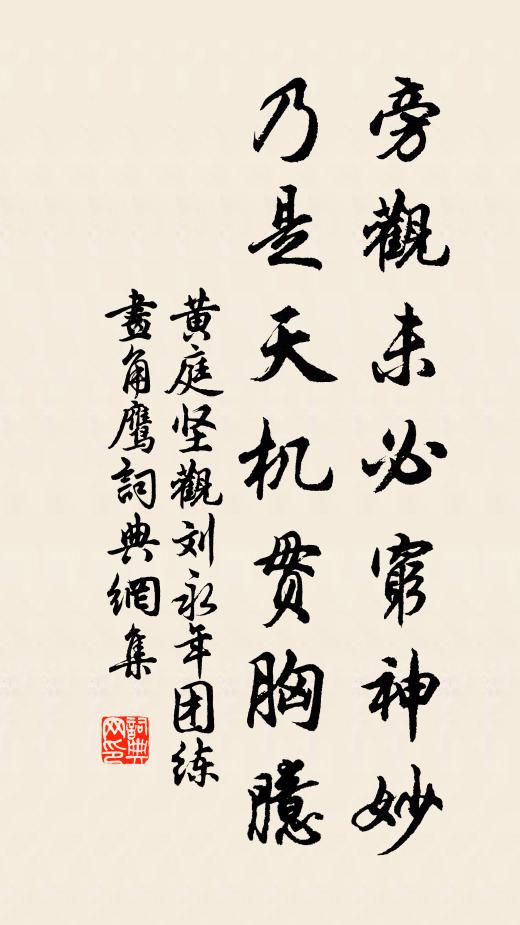 旁觀未必窮神妙
乃是天机贯胸臆
黄庭坚觀刘永年团练
畫角鷹詞典網集
詞典
网印